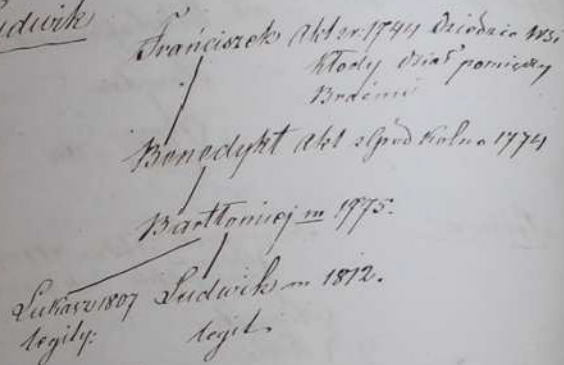 Ludwik
Franciszek Akt z r. 1744 Dziedzic Wsi
Kłody dział pomiędzy
Braćmi
Benedykt Akt z Grod Kolna 1774
Bartłomiej m 1775.
Łukasz 1807 Ludwik m 1812.
legity: legit.